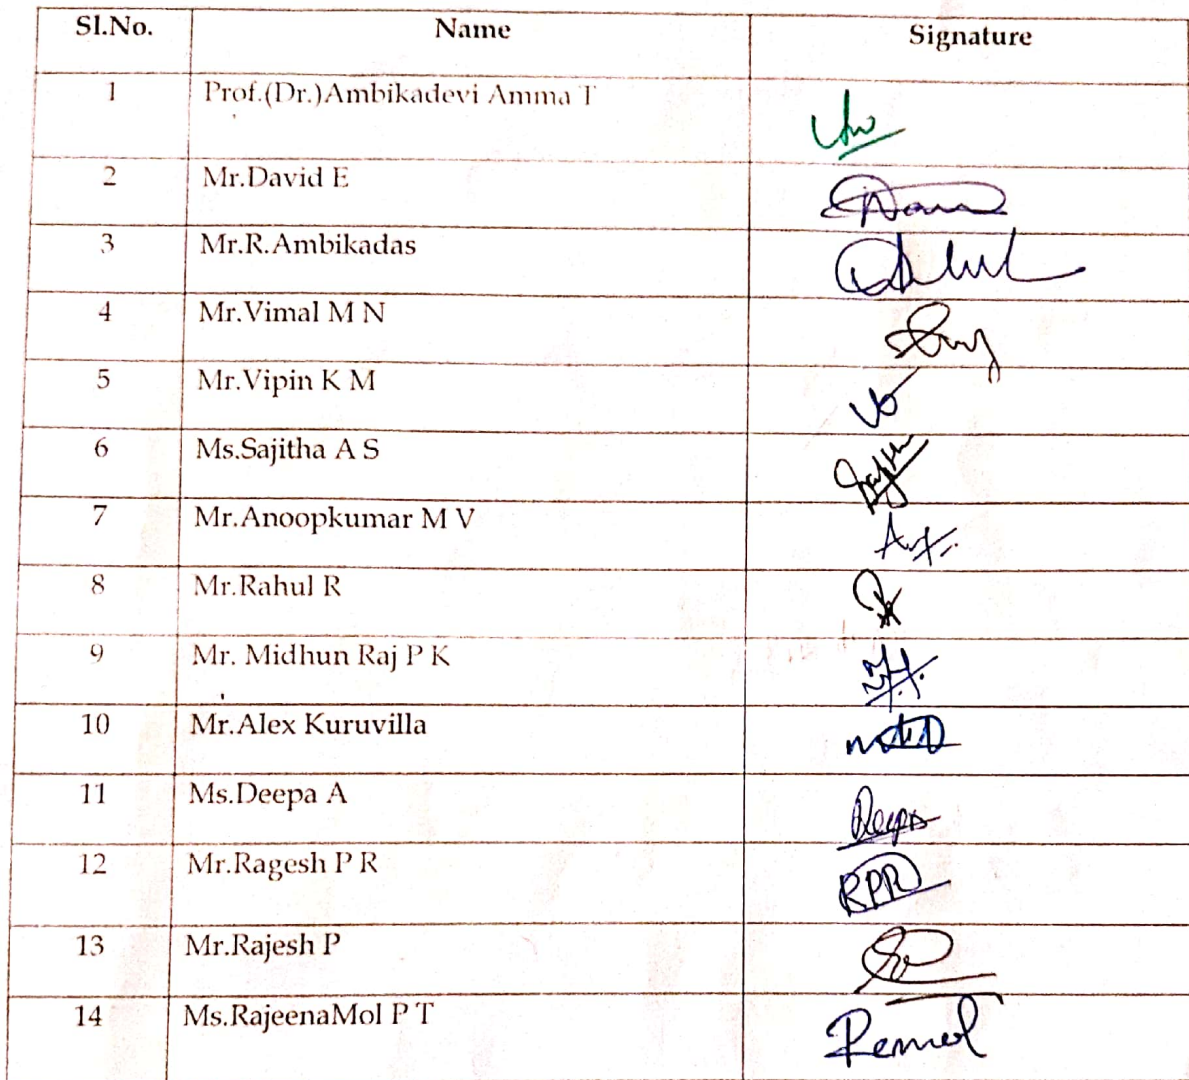 Sl.No. Name Signature
1 Prof.(Dr.)Ambikadevi Amma T
2 Mr.David E
3 Mr.R.Ambikadas
4 Mr.Vimal M N
5 Mr.Vipin K M
6 Ms.Sajitha A S
7 Mr.Anoopkumar M V
8 Mr.Rahul R
9 Mr. Midhun Raj P K
10 Mr.Alex Kuruvilla
11 Ms.Deepa A Deepa
12 Mr.Ragesh P R RPR
13 Mr.Rajesh P
14 Ms.RajeenaMol P T